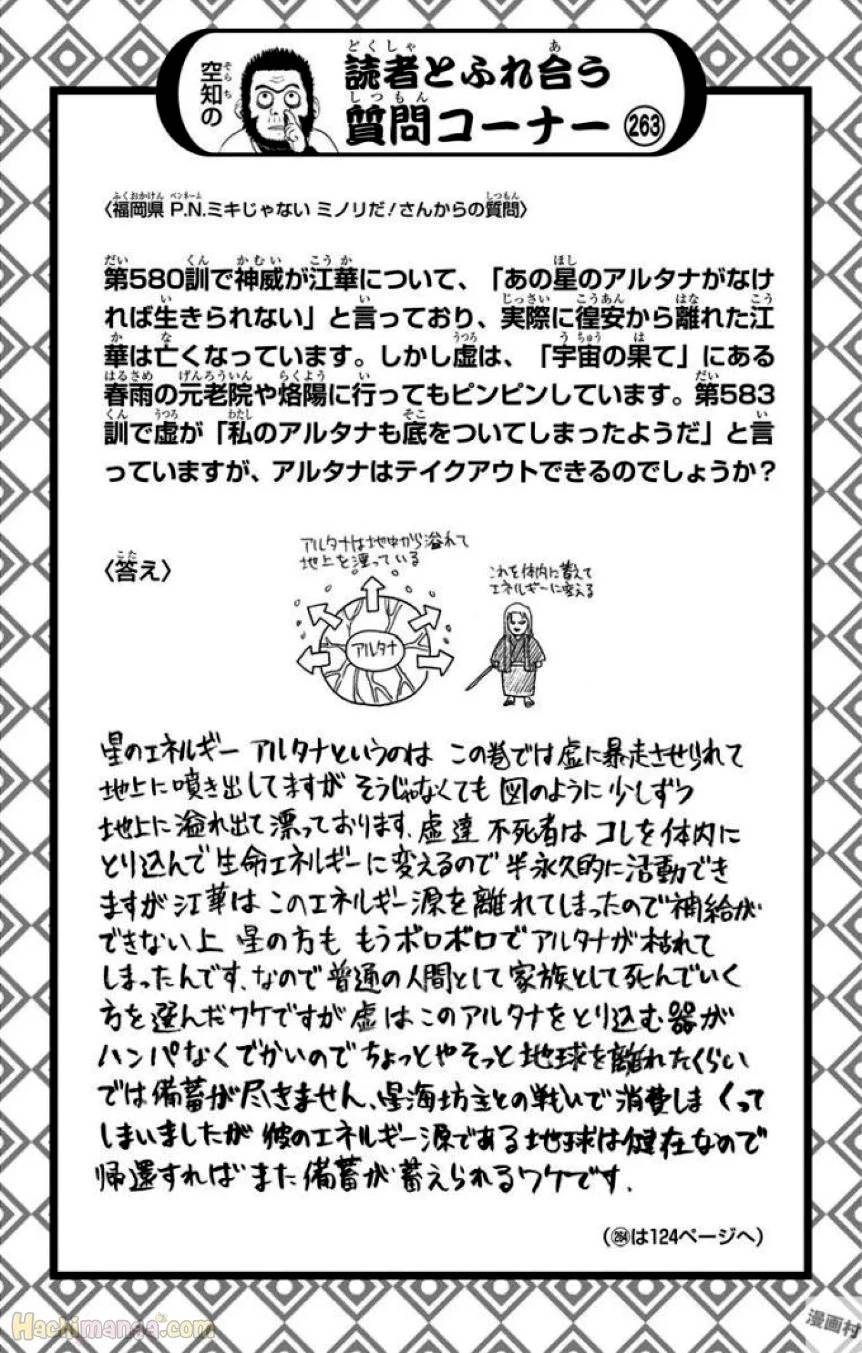 空知の
読者とふれ合う
質問コーナー 263
〈福岡県 P.N.ミキじゃない ミノリだ!さんからの質問〉
第580訓で神威が江華について、「あの星のアルタナがなけ
れば生きられない」と言っており、実際に徨安から離れた江
華は亡くなっています。しかし虚は、「宇宙の果て」にある
春雨の元老院や烙陽に行ってもピンピンしています。第583
訓で虚が「私のアルタナも底をついてしまったようだ」と言
っていますが、アルタナはテイクアウトできるのでしょうか?
〈答え〉
アルタナは地中から溢れて
地上を漂っている
アルタナ
これを体内に蓄えて
エネルギーに変える
星のエネルギー アルタナというのは この巻では虚に暴走させられて
地上に噴き出してますが そうじゃなくても 図のように 少しずつ
地上に溢れ出て漂っております.虚達 不死者は コレを体内に
とり込んで生命エネルギーに変えるので半永久的に活動でき
ますが江華は このエネルギー源を離れてしまったので補給が
できない上 星の方も もうボロボロでアルタナが枯れて
しまったんです.なので普通の人間として家族として死んでいく
方を選んだワケですが虚はこのアルタナをとり込む器が
ハンパなくでかいのでちょっとやそっと地球を離れたくらい
では備蓄が尽きません、星海坊主との戦いで消費しまくって
しまいましたが 彼のエネルギー源である地球は健在なので
帰還すればまた備蓄が蓄えられるワケです.
(264は124ページへ)
Hachimanga.com
漫画村